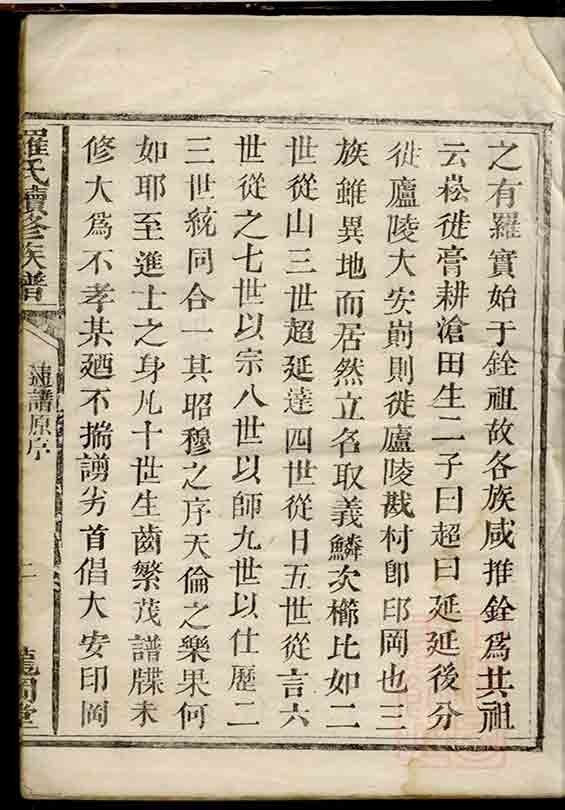 之有羅實始于銓祖故各族咸推銓爲共祖
云崧徙膏耕滄田生二子曰超曰延延後分
徙廬陵大安嵛則徙廬陵戡村卽邱岡也三
族雖異地而居然立名取義鱗次櫛比如二
世從山三世超延達四世從日五世從言六
世從之七世以宗八世以師九世以仕歷二
三世統同合一其昭穆之序天倫之樂果何
如耶至進士之身凡十世生齒繁茂譜牒未
修大爲不孝某廼不揣謭劣首倡大安印岡
羅氏續修族譜
通譜原序
二